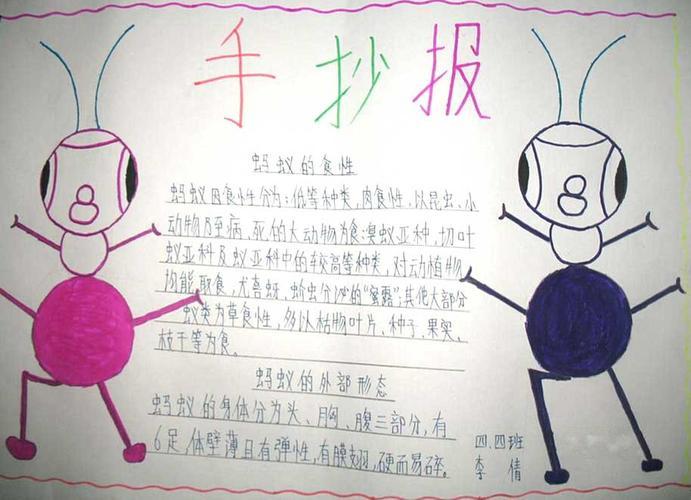 手抄报
蚂蚁的食性
蚂蚁因食性分为:低等种类,肉食性,以昆虫、小
动物乃至病、死的大动物为食;臭蚁亚种,切叶
蚁亚科及蚁亚科中的较高等种类,对动植物
均能取食,尤喜蚜,蚧虫分泌的“蜜露”;其他大部分
蚁类为草食性,多以枯物叶片、种子、果实、
枝干等为食。
蚂蚁的外部形态
蚂蚁的身体分为头、胸、腹三部分,有
6足,体壁薄且有弹性,有膜翅,硬而易碎。
四.四班
李 倩